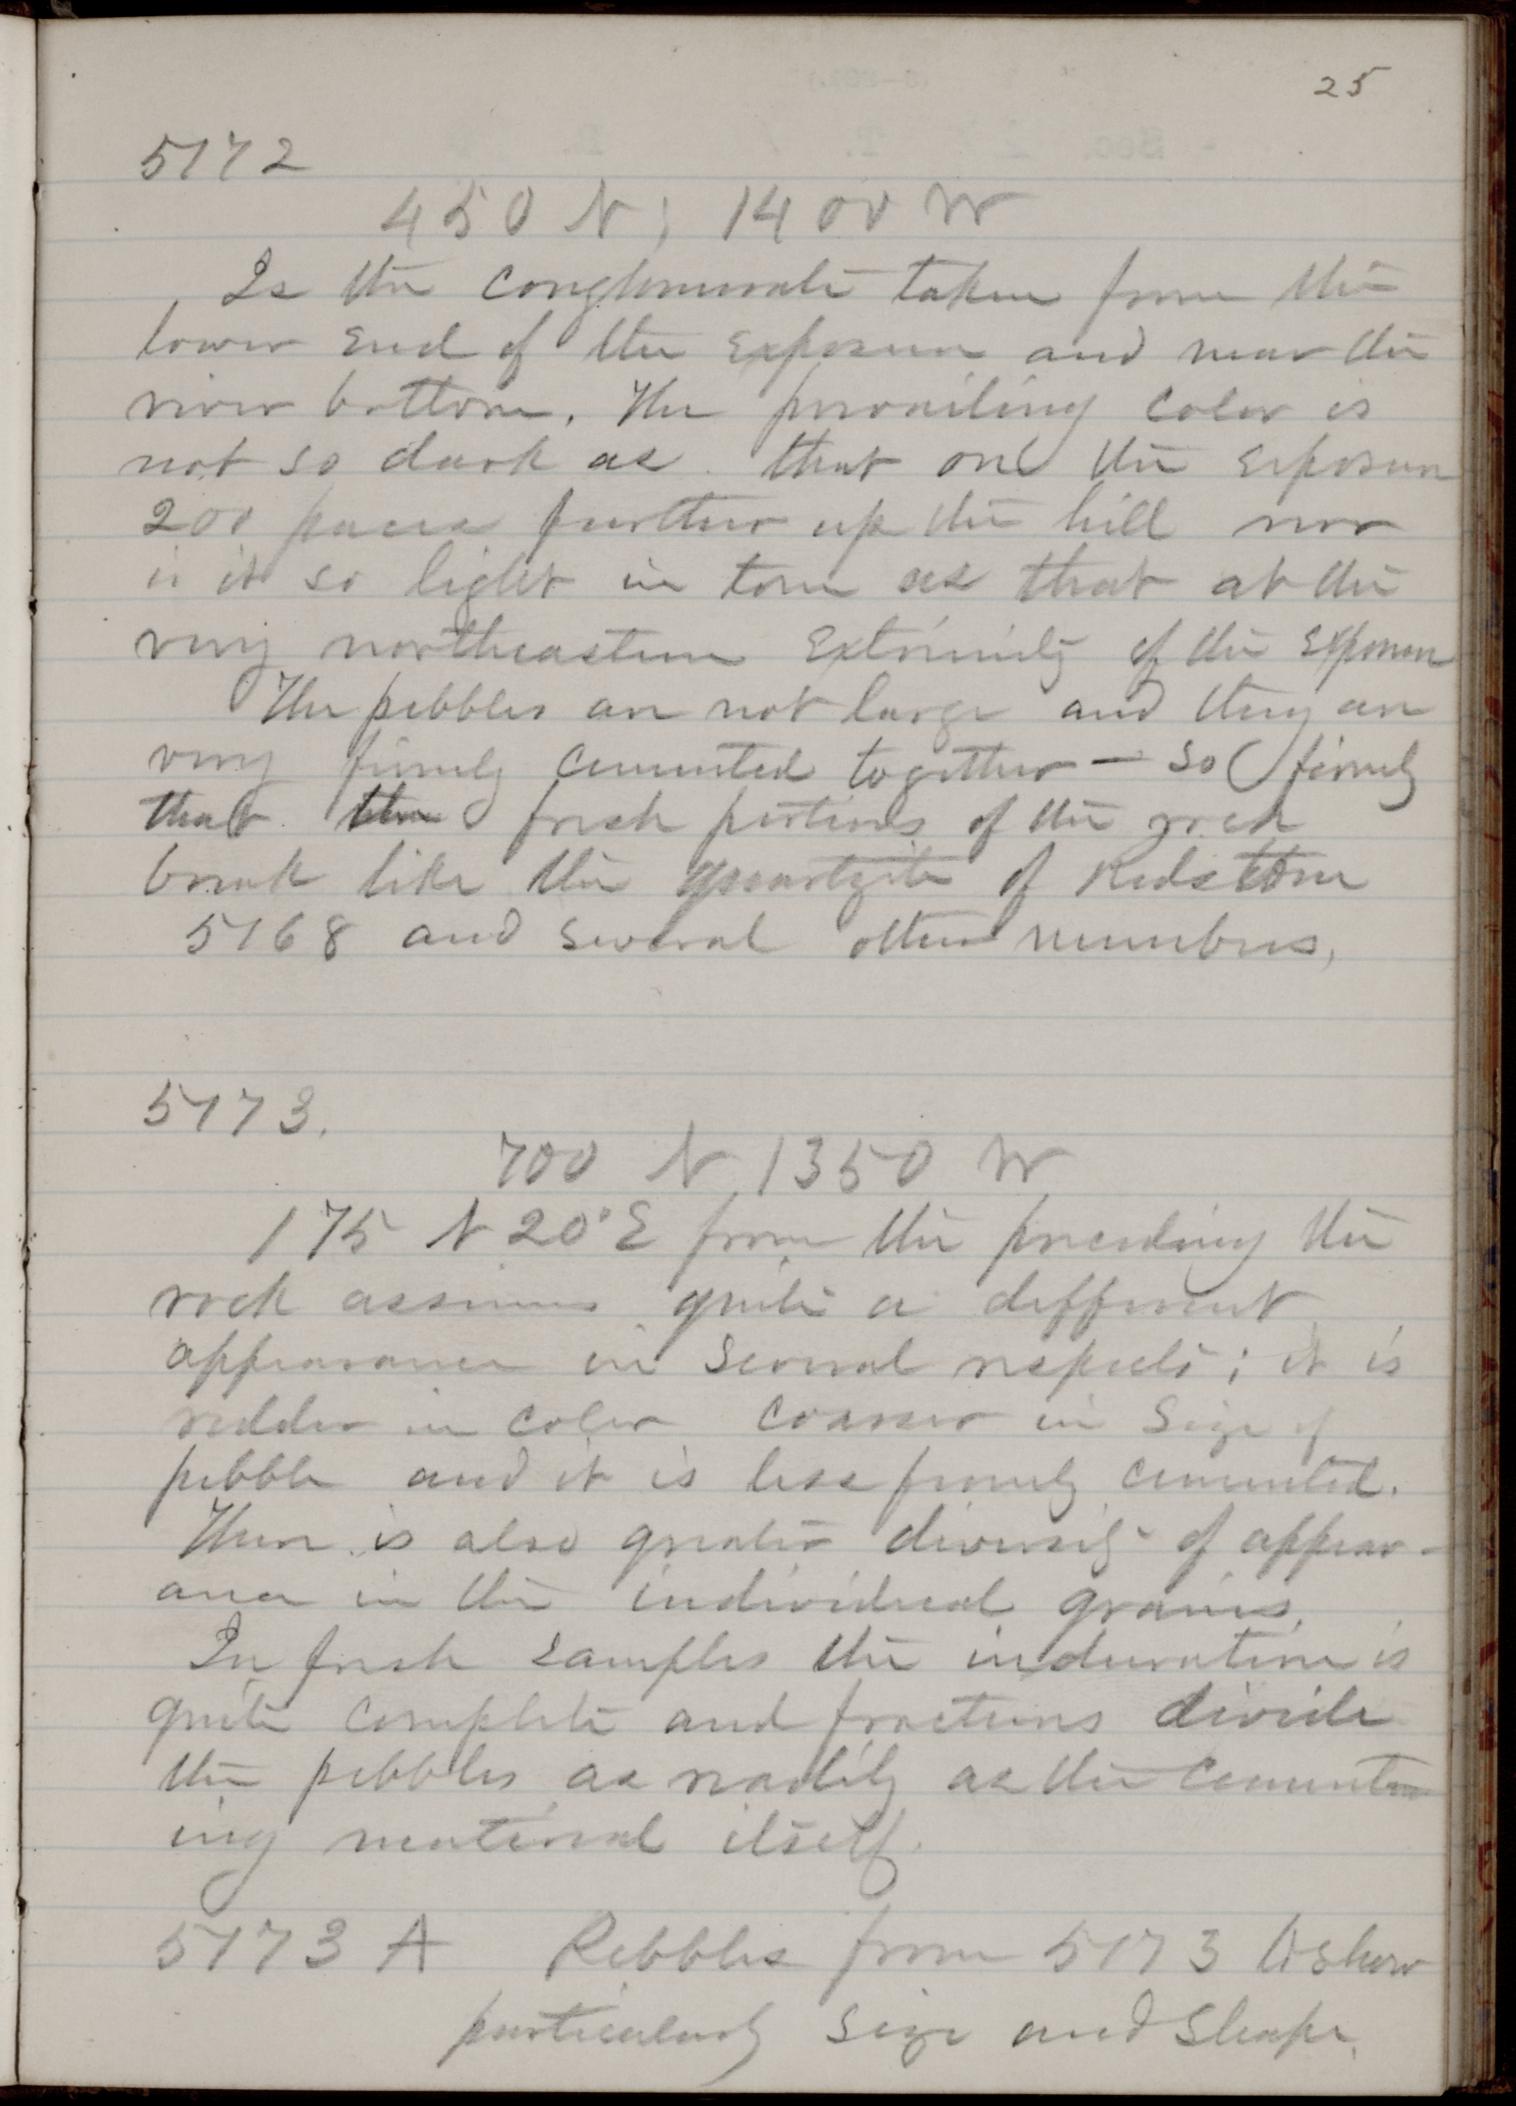 25
5172
450 N; 1400 W
Is the conglomerate taken from the
lower end of the exposure and near the
river bottom. The prevailing color is
not so dark as that on the exposure
200 paces further up the hill nor
is it so light in tone as that at the
very northeastern extremity of the exposure
The pebbles are not large and they are
very firmly cemented together — so firmly
that the fresh portions of the rock
break like the quartzite of Redstone
5168 and several other numbers,
5173.
700 N 1350 W
175 N 20° E from the preceding the
rock assumes quite a different
appearance in several respects; it is
redder in color coarser in size of
pebble and it is less firmly cemented.
There is also greater diversity of appear-
ance in the individual grains.
In fresh samples the induration is
quite complete and fractures divide
the pebbles as readily as the cement
ing material itself.
5173 A Pebbles from 5173 to show
particularly size and shape.